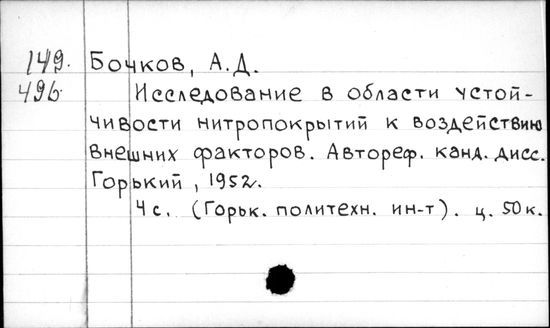 149. Бочков, А.Д.
496 Исследование в области устой-
чивости нитропокрытий к воздействию
внешних факторов. Автореф. канд. дисс.
Горький, 1952.
4 с. (Горьк. политехн. ин-т). ц. 50 к.